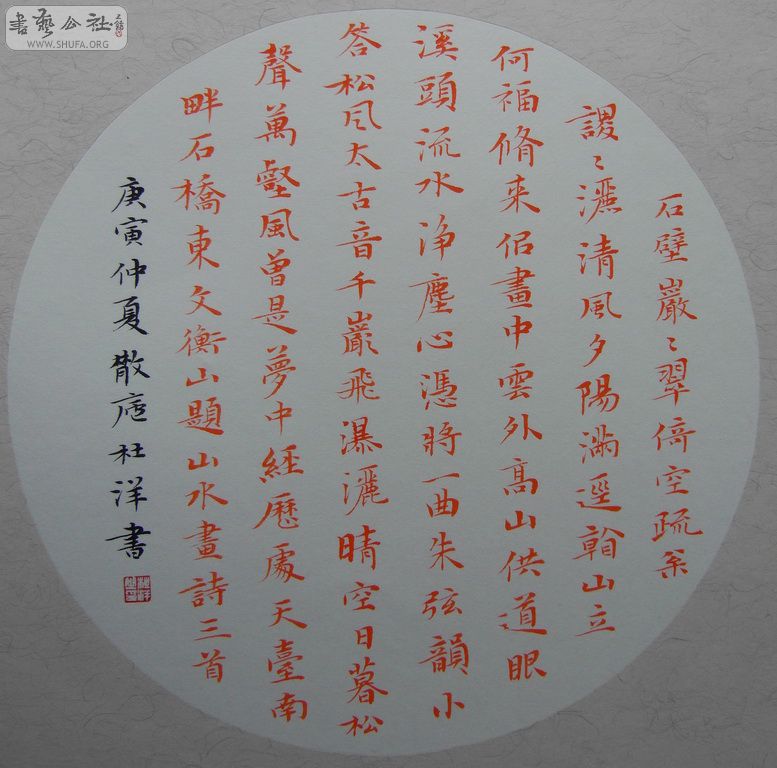 書藝公社
WWW.SHUFA.ORG
石壁巖〻翠倚空疏枀
謖〻灑清風夕陽滿逕䀍山立
何福脩来佀畫中雲外高山供道眼
溪頭流水浄塵心憑將一曲朱弦韻小
答松风太古音千巖飛瀑灑晴空日暮松
聲萬壑風曾是夢中經歷處天臺南
畔石橋東文衡山題山水畫詩三首
庚寅仲夏散庵杜洋書